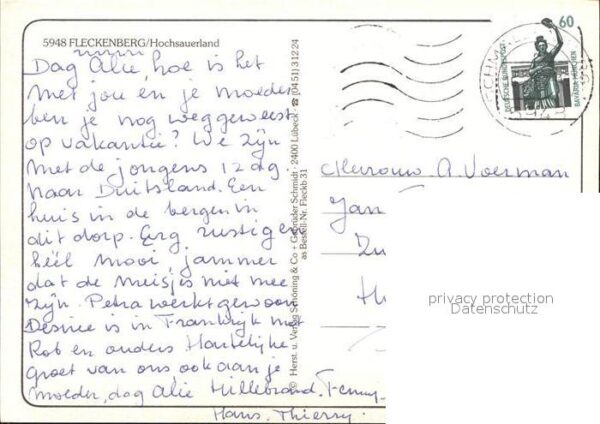 5948 FLECKENBERG/Hochsauerland
Dag Alie, hoe is het
met jou en je moeder
ben je nog weggeweest
op vakantie? We zijn
met de jongens 12 dg
naar Duitsland. Een
huis in de bergen in
dit dorp. Erg rustig en
héél mooi, jammer
dat de meisjes niet mee
zijn. Petra werkt gewoon
Desiree is in Frankrijk met
Rob en ouders Hartelijke
Groet van ons ook aan je
moeder, dag Alie Hillebrand. Fenny-
Hans. Thierry.
© Herst. u. Verlag Schöning & Co + Gebrüder Schmidt · 2400 Lübeck · ☎ (0451) 31224
as Bestell-Nr. Fleckb 31
60
DEUTSCHE BUNDESPOST
BAVARIA MÜNCHEN
5948
Mevrouw A. Voerman
Jan
Zu
privacy protection
Datenschutz